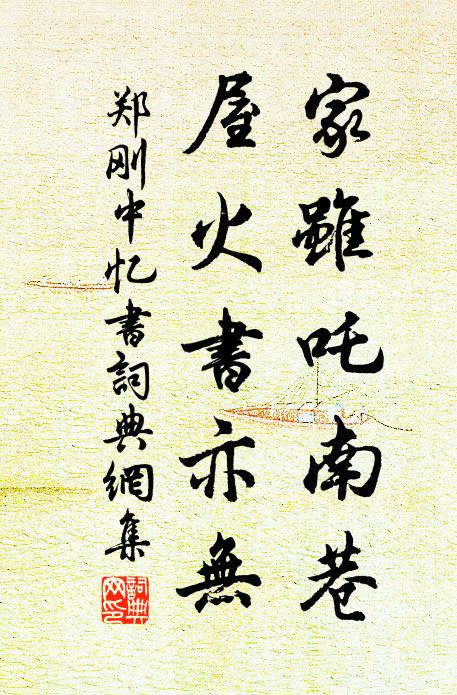 家雖吒南巷
屋火書亦無
郑刚中忆書詞典網集
詞典网印